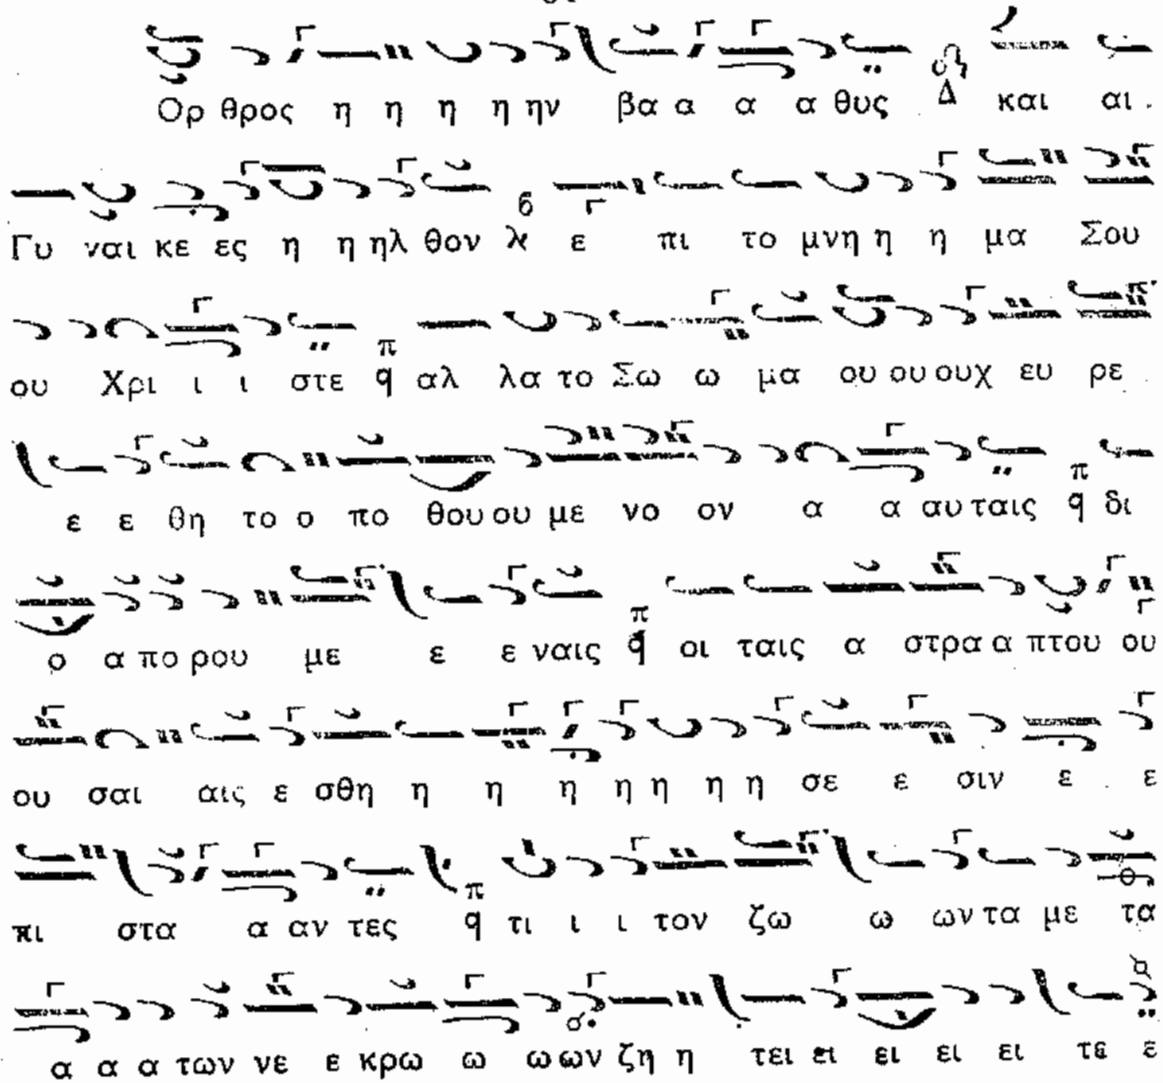 Ορ θρος η η η η ην βα α α α θυς Δ και αι
Γυ ναι κε ες η η ηλ θον ε πι το μνη η η μα Σου
ου Χρι ι ι στε π q αλ λα το Σω ω μα ου ου ουχ ευ ρε
ε ε θη το ο πο θου ου με νο ον α α αυ ταις π q δι
ο α πο ρου με ε ε ναις π q οι ταις α στρα α πτου ου
ου σαι αις ε σθη η η η η η η η σε ε σιν ε ε
πι στα α αν τες π q τι ι ι τον ζω ω ων τα με τα
α α α των νε ε κρω ω ω ων ζη η τει ει ει ει ει τε ε